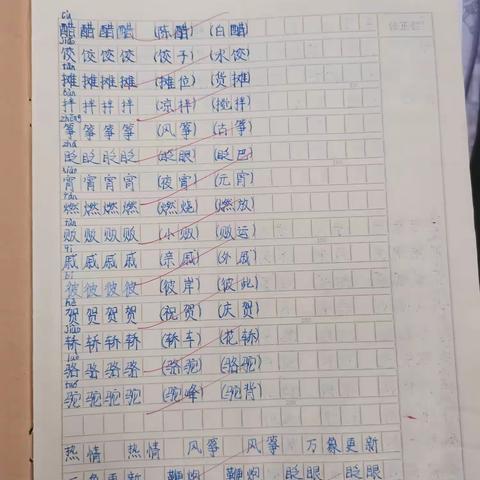 cù
醋醋醋醋 (陈醋) (白醋)
jiǎo
饺饺饺饺 (饺子) (水饺)
tān
摊摊摊摊 (摊位) (货摊)
bàn
拌拌拌拌 (凉拌) (搅拌)
zhēng
筝筝筝筝 (风筝) (古筝)
zhǎ
眨眨眨眨 (眨眼) (眨巴)
xiāo
宵宵宵宵 (夜宵) (元宵)
rán
燃燃燃燃 (燃烧) (燃放)
fàn
贩贩贩贩 (小贩) (贩运)
qī
戚戚戚戚 (亲戚) (外戚)
bǐ
彼彼彼彼 (彼岸) (彼此)
hè
贺贺贺贺 (祝贺) (庆贺)
jiào
轿轿轿轿 (轿车) (花轿)
luò
骆骆骆骆 (骆驼) (骆驼)
tuó
驼驼驼驼 (驼峰) (驼背)
热情 热情 风筝 风筝 万象更新
万象更新 鞭炮 鞭炮 眨眼 眨眼